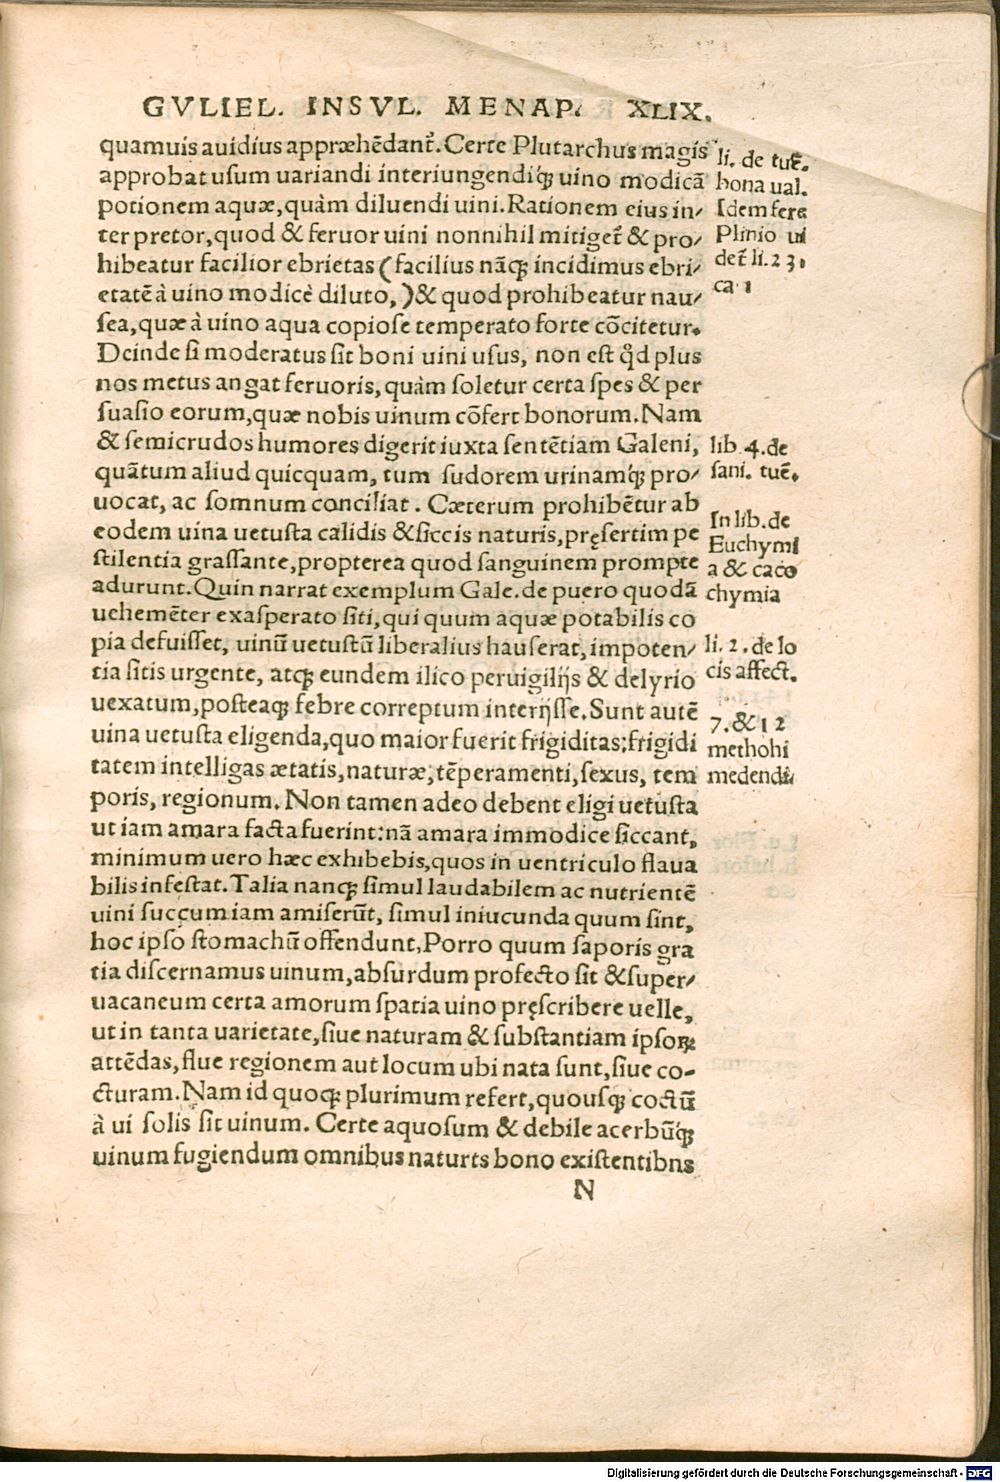 GVLIEL. INSVL. MENAP. XLIX.
quamuis auidius appræhēdant̃. Certe Plutarchus magis
approbat usum uariandi interiungendiq̃ uino modicã
potionem aquæ, quàm diluendi uini. Rationem eius in-
ter pretor, quod & feruor uini nonnihil mitiget̃ & pro-
hibeatur facilior ebrietas (facilius nãq̃ incidimus ebri-
etatē à uino modicè diluto,) & quod prohibeatur nau-
sea, quæ à uino aqua copiose temperato forte cõcitetur.
Deinde si moderatus sit boni uini usus, non est q̃d plus
nos metus angat feruoris, quàm soletur certa spes & per
suasio eorum, quæ nobis uinum cõfert bonorum. Nam
& semicrudos humores digerit iuxta sentētiam Galeni,
quãtum aliud quicquam, tum sudorem urinamq̃ pro-
uocat, ac somnum conciliat. Cæterum prohibētur ab
eodem uina uetusta calidis & siccis naturis, pręsertim pe
stilentia grassante, propterea quod sanguinem prompte
adurunt. Quin narrat exemplum Gale. de puero quodã
uehemēter exasperato siti, qui quum aquæ potabilis co
pia defuisset, uinũ uetustũ liberalius hauserat, impoten-
tia sitis urgente, atq̃ eundem ilico peruigilijs & delyrio
uexatum, posteaq̃ febre correptum interijsse. Sunt autē
uina uetusta eligenda, quo maior fuerit frigiditas; frigidi
tatem intelligas ætatis, naturæ, tēperamenti, sexus, tem
poris, regionum. Non tamen adeo debent eligi uetusta
ut iam amara facta fuerint: nã amara immodice siccant,
minimum uero hæc exhibebis, quos in uentriculo flaua
bilis infestat. Talia nanq̃ simul laudabilem ac nutrientē
uini succum iam amiserũt, simul iniucunda quum sint,
hoc ipso stomachũ offendunt, Porro quum saporis gra
tia discernamus uinum, absurdum profecto sit & super-
uacaneum certa amorum spatia uino pręscribere uelle,
ut in tanta uarietate, siue naturam & substantiam ipsoꝝ
attēdas, flue regionem aut locum ubi nata sunt, siue co-
cturam. Nam id quoq̃ plurimum refert, quousq̃ coctũ
à ui solis sit uinum. Certe aquosum & debile acerbũq̃
uinum fugiendum omnibus naturts bono existentibns
N
li. de tuẽ.
bona ual.
Idem fere
Plinio ui
det̃ li. 23.
ca. 1
lib. 4. de
sani. tuẽ.
In lib. de
Euchymi
a & caco
chymia
li. 2. de lo
cis affect.
7. & 12
methohi
medendi.
Digitalisierung gefördert durch die Deutsche Forschungsgemeinschaft - DFG